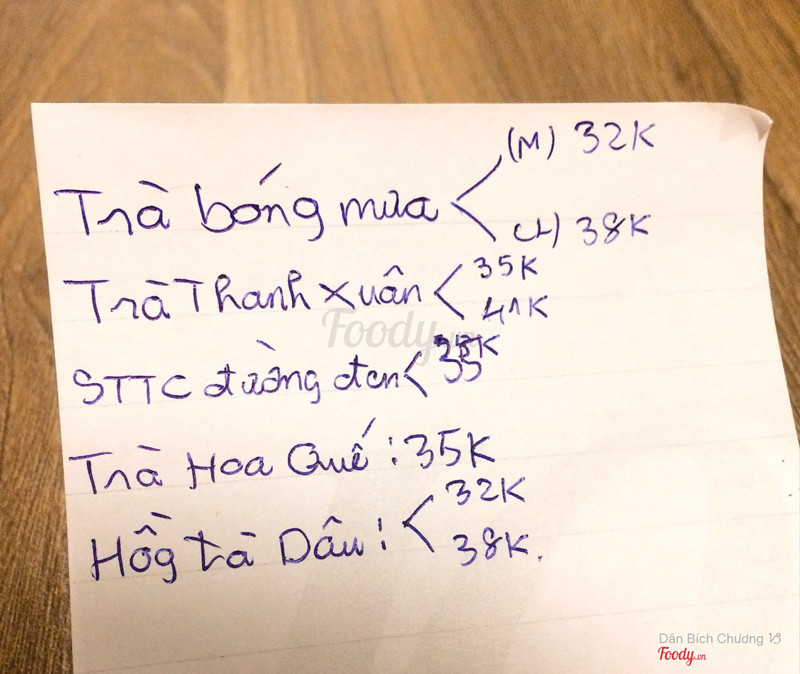 Trà bóng mưa < (M) 32K
(L) 38K
Trà Thanh Xuân < 35K
41K
STTC đường đen < 35
Trà Hoa Quế : 35K
Hồg tà Dâu : < 32K
38K.
Foody.vn
Dân Bích Chương
Foody.vn